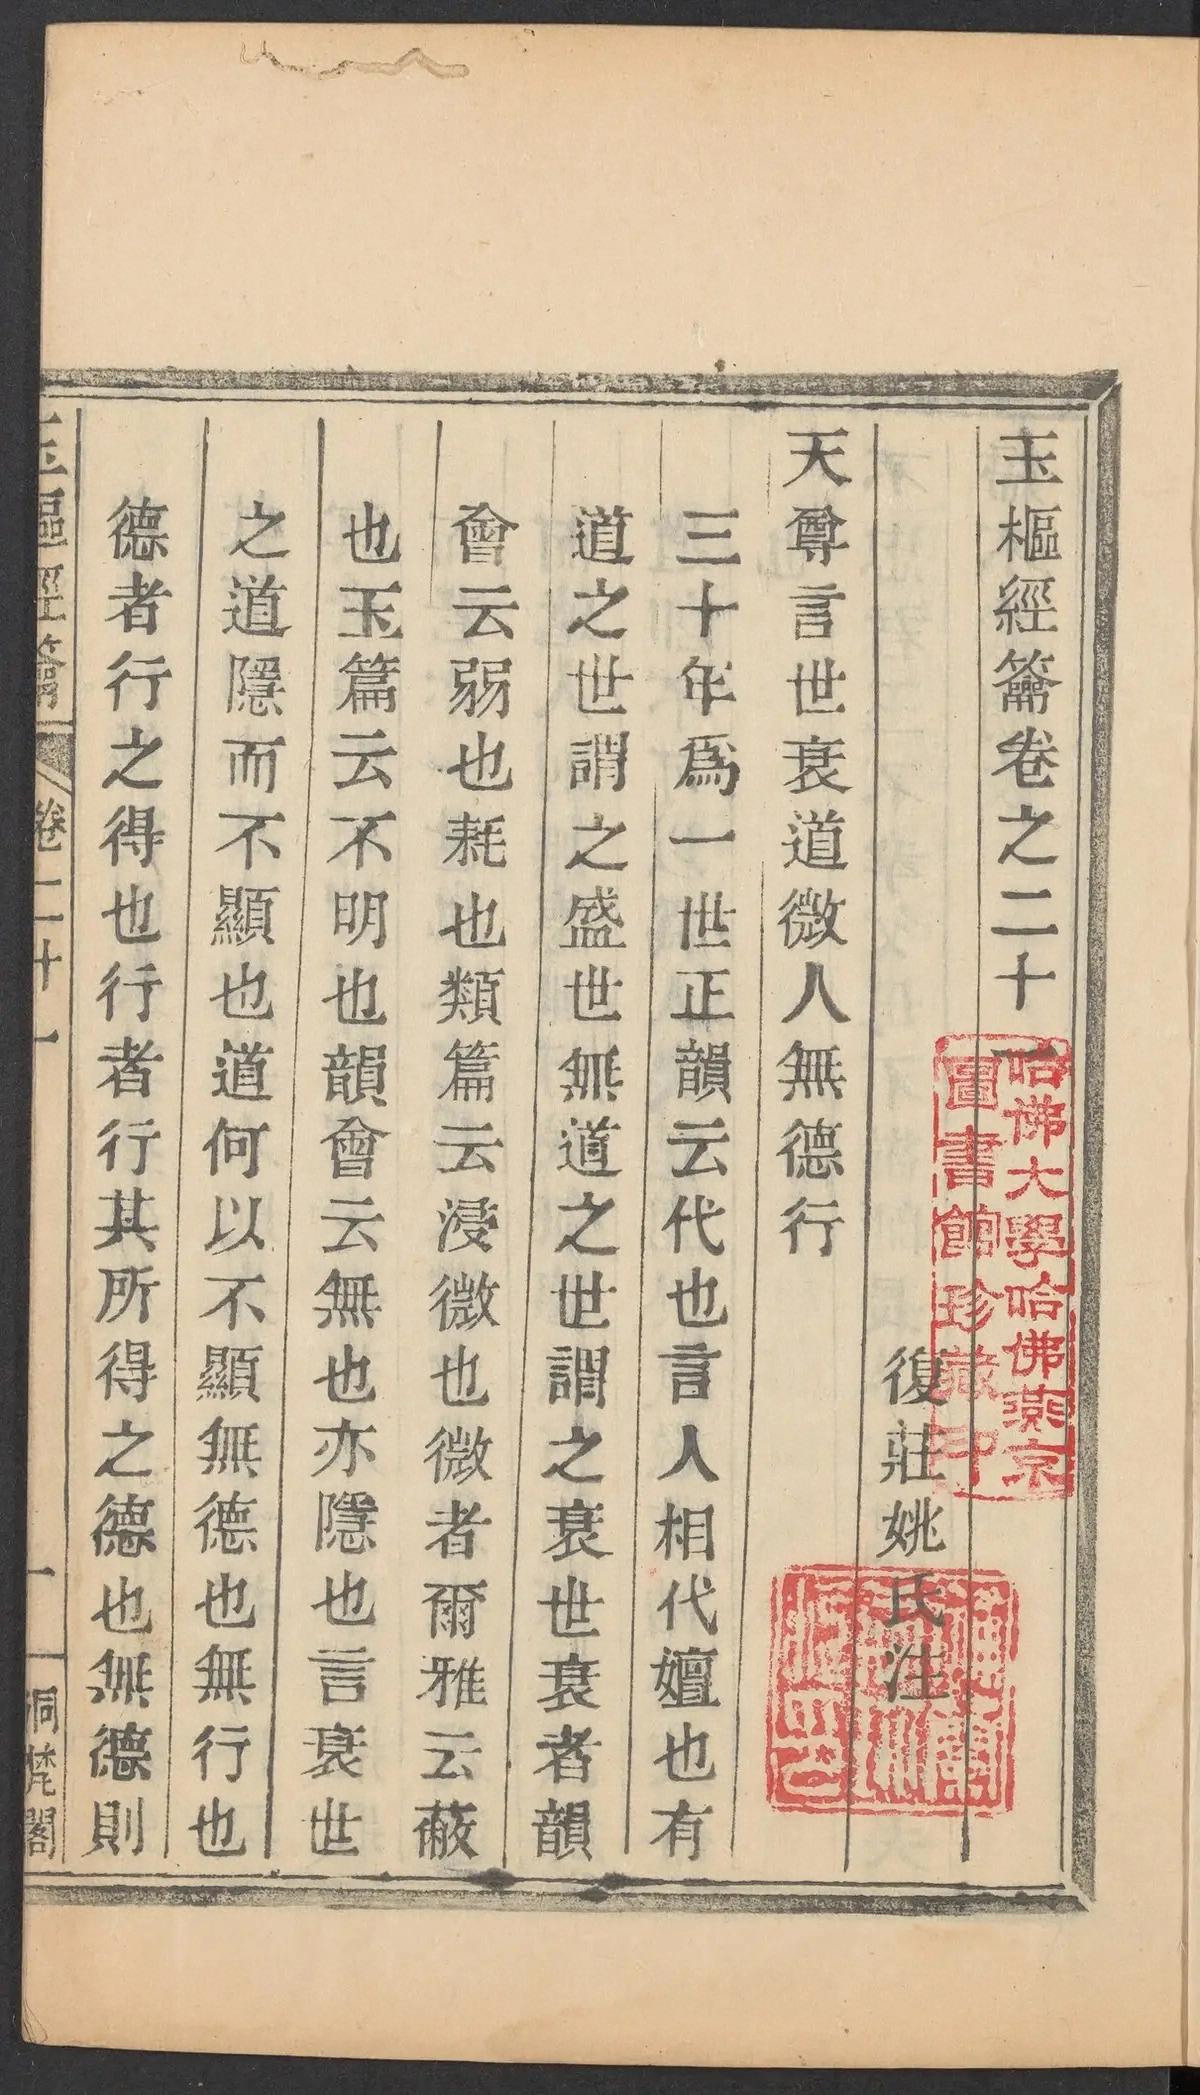 玉樞經籥卷之二十一
復莊姚氏注
天尊言世衰道微人無德行
三十年爲一世正韻云代也言人相代嬗也有
道之世謂之盛世無道之世謂之衰世衰者韻
會云弱也耗也類篇云浸微也微者爾雅云蔽
也玉篇云不明也韻會云無也亦隱也言衰世
之道隱而不顯也道何以不顯無德也無行也
德者行之得也行者行其所得之德也無德則
玉樞經籥
卷二十一
一
洞梵閣
哈佛大學哈佛燕京
圖書館珍藏印